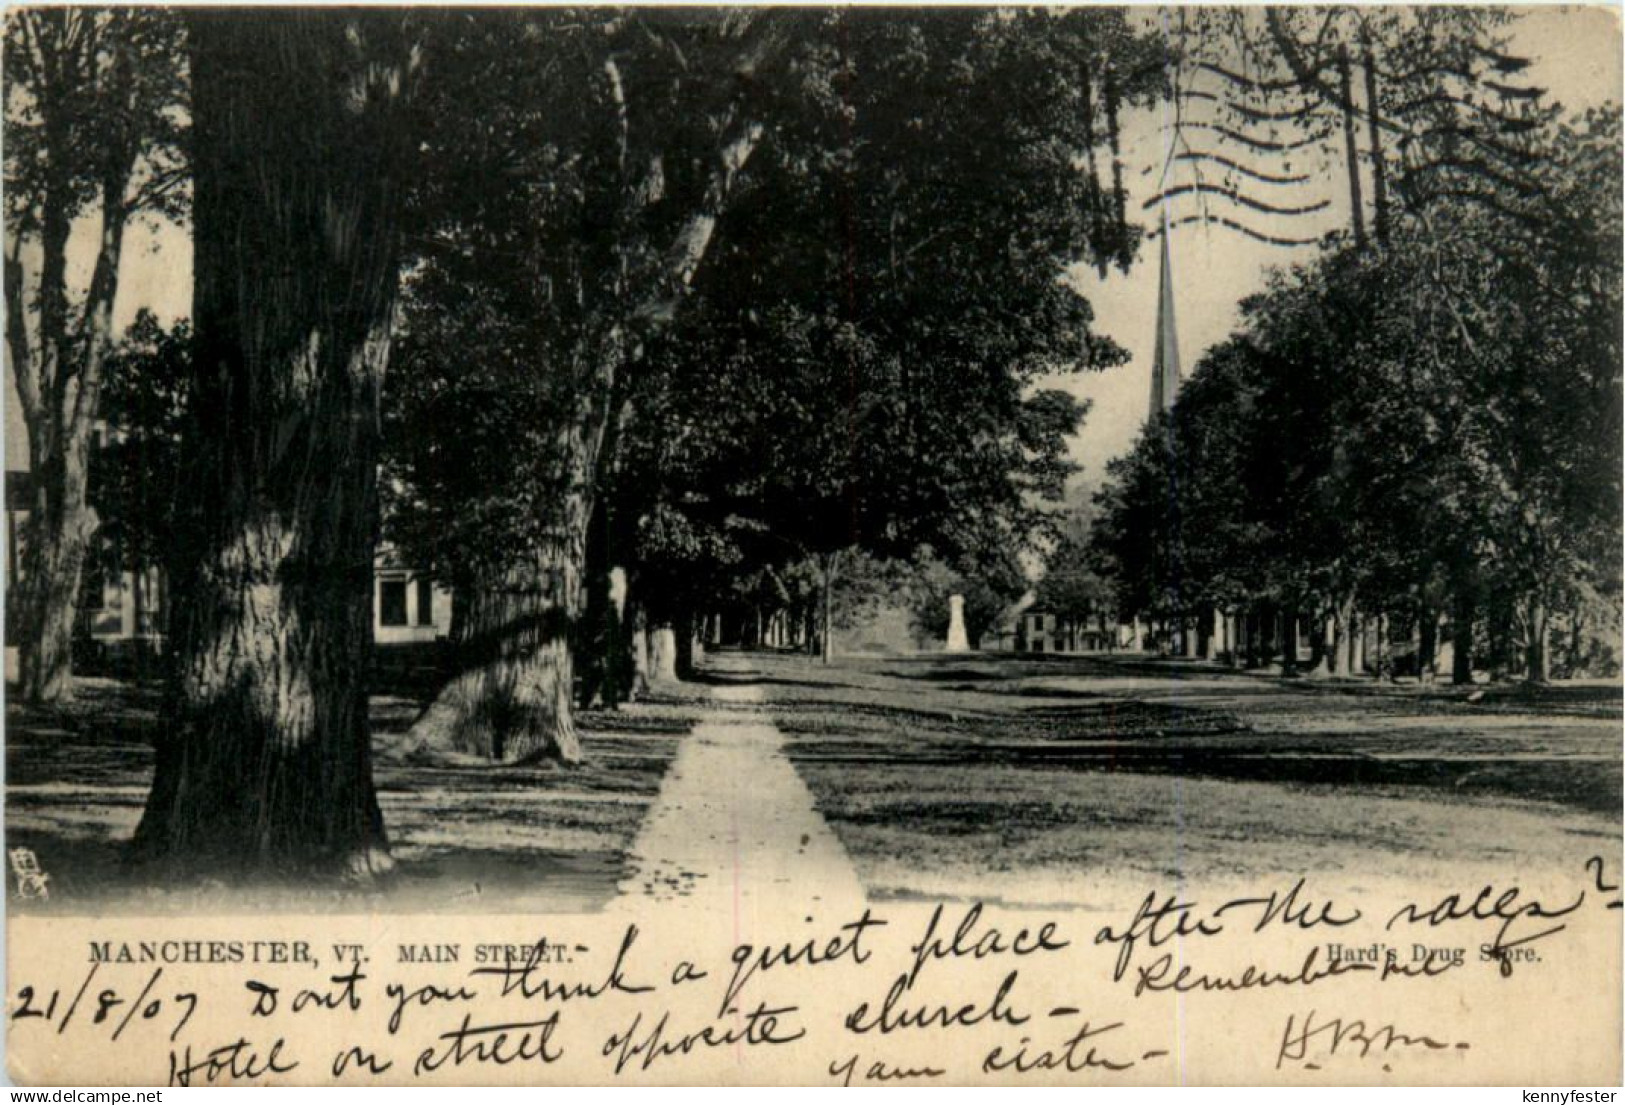 MANCHESTER, VT. MAIN STREET.
Hard's Drug Store.
21/8/07 Dont you think a quiet place after the races?
Hotel on street opposite church -
Remember me
your sister -
H.B.M.
delcampe.net
kennyfester